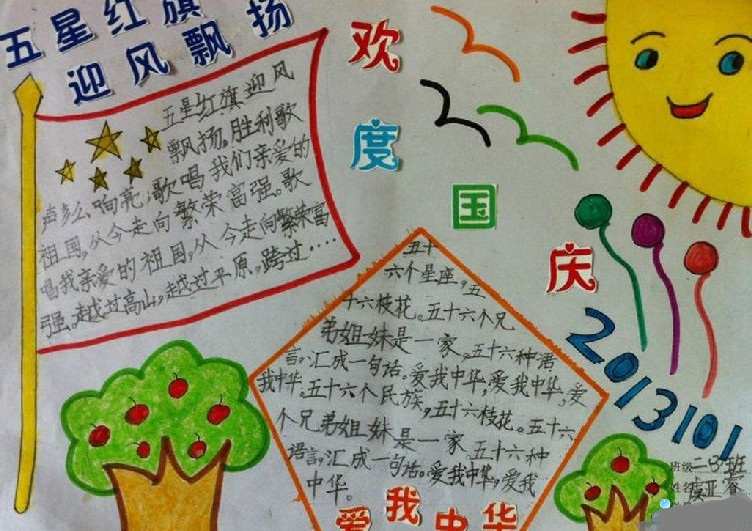 五星红旗
迎风飘扬
欢度国庆
五星红旗迎风
飘扬。胜利歌
声多么响亮,歌唱我们亲爱的
祖国,从今走向繁荣富强。歌
唱我亲爱的祖国,从今走向繁荣富
强。越过高山,越过平原。跨过····
五十
六个星座,五
十六枝花。五十六个兄
弟姐妹是一家。五十六种语
言,汇成一句话。爱我中华,爱我中华,爱
我中华。五十六个民族,五十六枝花。五十六
个兄弟姐妹是一家。五十六种
语言,汇成一句话。爱我中华,爱我
中华。
爱我中华
2013101
班级二3班
姓名